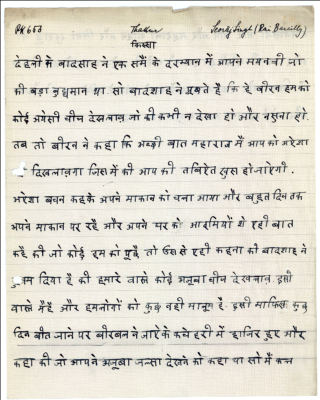 PK 653 Thakur Scorly Singh (Rai Bareilly)
किस्सा
देहली मे बादसाह ने एक समै के दरम्यान में आपने मयनत्री जो
की बड़ा बुधमान था सो बादशाह ने पूछते है कि हे बीरन हमको
कोई अयसी चीज देखलाव जो की कभी न देखा हो और न सुना हो
तब तो बीरन ने कहा कि अच्छी बात महाराज मैं आप को अएसा
दिखलाउगा जिस में की आप की तबिऐत खुस हो जाऐगी.
अएसा बचन कहके अपने माकान को चला आया और बहुत दिन तक
अपने माकान पर रहै और अपने घर को आदमियों से ऐही बात
कहै की जो कोई हम को पूछै तो उससे एही कहना की बादशाह ने
हुकम दिया है की हमारे वास्ते कोई अजूबा चीज देखलाव. इसी
वास्ते गै है और हमलोगों को कुछ नही मालूम है. इसी माफिक. कुछ
दिन बीत जाने पर बीरबल ने जाऐके कचेहरी में हाजिर हुए और
कहा की जो आपने अजूबा जल्सा देखने को कहा था सो मैं कल